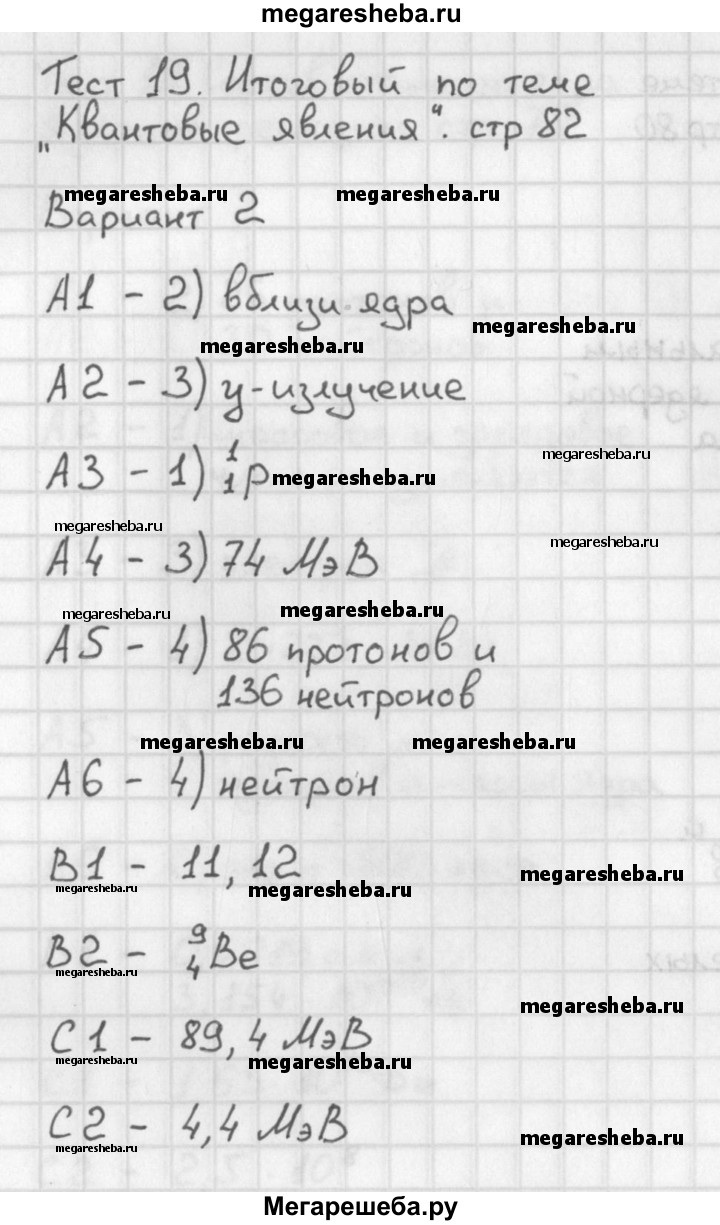 megaresheba.ru
Тест 19. Итоговый по теме
„Квантовые явления“. стр 82
megaresheba.ru megaresheba.ru
Вариант 2
А1 - 2) вблизи ядра
megaresheba.ru
megaresheba.ru
А2 - 3) γ-излучение
А3 - 1) ¹₁p
megaresheba.ru
megaresheba.ru
megaresheba.ru
megaresheba.ru
А4 - 3) 74 МэВ
megaresheba.ru
megaresheba.ru
А5 - 4) 86 протонов и
136 нейтронов
megaresheba.ru megaresheba.ru
А6 - 4) нейтрон
В1 - 11, 12
megaresheba.ru
megaresheba.ru
megaresheba.ru
В2 - ⁹₄Be
megaresheba.ru
megaresheba.ru
С1 - 89,4 МэВ
megaresheba.ru
megaresheba.ru
С2 - 4,4 МэВ
megaresheba.ru
megaresheba.ru
Мегарешеба.ру